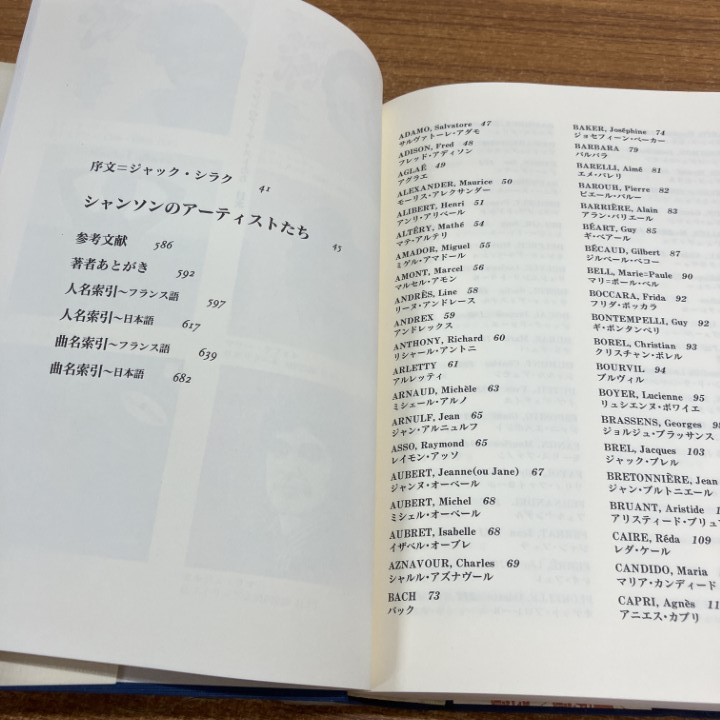 序文=ジャック・シラク 41
シャンソンのアーティストたち 45
参考文献 586
著者あとがき 592
人名索引～フランス語 597
人名索引～日本語 617
曲名索引～フランス語 639
曲名索引～日本語 682
ADAMO, Salvatore 47
サルヴァトーレ・アダモ
ADISON, Fred 48
フレッド・アディソン
AGLAË 49
アグラエ
ALEXANDER, Maurice 50
モーリス・アレクサンダー
ALIBERT, Henri 51
アンリ・アリベール
ALTÉRY, Mathé 54
マテ・アルテリ
AMADOR, Miguel 55
ミゲル・アマドール
AMONT, Marcel 56
マルセル・アモン
ANDRÈS, Line 58
リーヌ・アンドレース
ANDREX 59
アンドレックス
ANTHONY, Richard 60
リシャール・アントニ
ARLETTY 61
アルレッティ
ARNAUD, Michèle 63
ミシェール・アルノ
ARNULF, Jean 65
ジャン・アルニュルフ
ASSO, Raymond 65
レイモン・アッソ
AUBERT, Jeanne(ou Jane) 67
ジャンヌ・オーベール
AUBERT, Michel 68
ミシェル・オーベール
AUBRET, Isabelle 68
イザベル・オーブレ
AZNAVOUR, Charles 69
シャルル・アズナヴール
BACH 73
バック
BAKER, Joséphine 74
ジョセフィーン・ベーカー
BARBARA 79
バルバラ
BARELLI, Aimé 81
エメ・バレリ
BAROUH, Pierre 82
ピエール・バルー
BARRIÈRE, Alain 83
アラン・バリエール
BÉART, Guy 85
ギ・ベアール
BÉCAUD, Gilbert 87
ジルベール・ベコー
BELL, Marie=Paule 90
マリ=ポール・ベル
BOCCARA, Frida 92
フリダ・ボッカラ
BONTEMPELLI, Guy 92
ギ・ボンタンペリ
BOREL, Christian 93
クリスチャン・ボレル
BOURVIL 94
ブルヴィル
BOYER, Lucienne 95
リュシエンヌ・ボワイエ
BRASSENS, Georges
ジョルジュ・ブラッサンス
BREL, Jacques 103
ジャック・ブレル
BRETONNIÈRE, Jean
ジャン・ブルトニエール
BRUANT, Aristide
アリスティード・ブリュ
CAIRE, Réda 109
レダ・ケール
CANDIDO, Maria
マリア・カンディード
CAPRI, Agnès 11
アニエス・カプリ